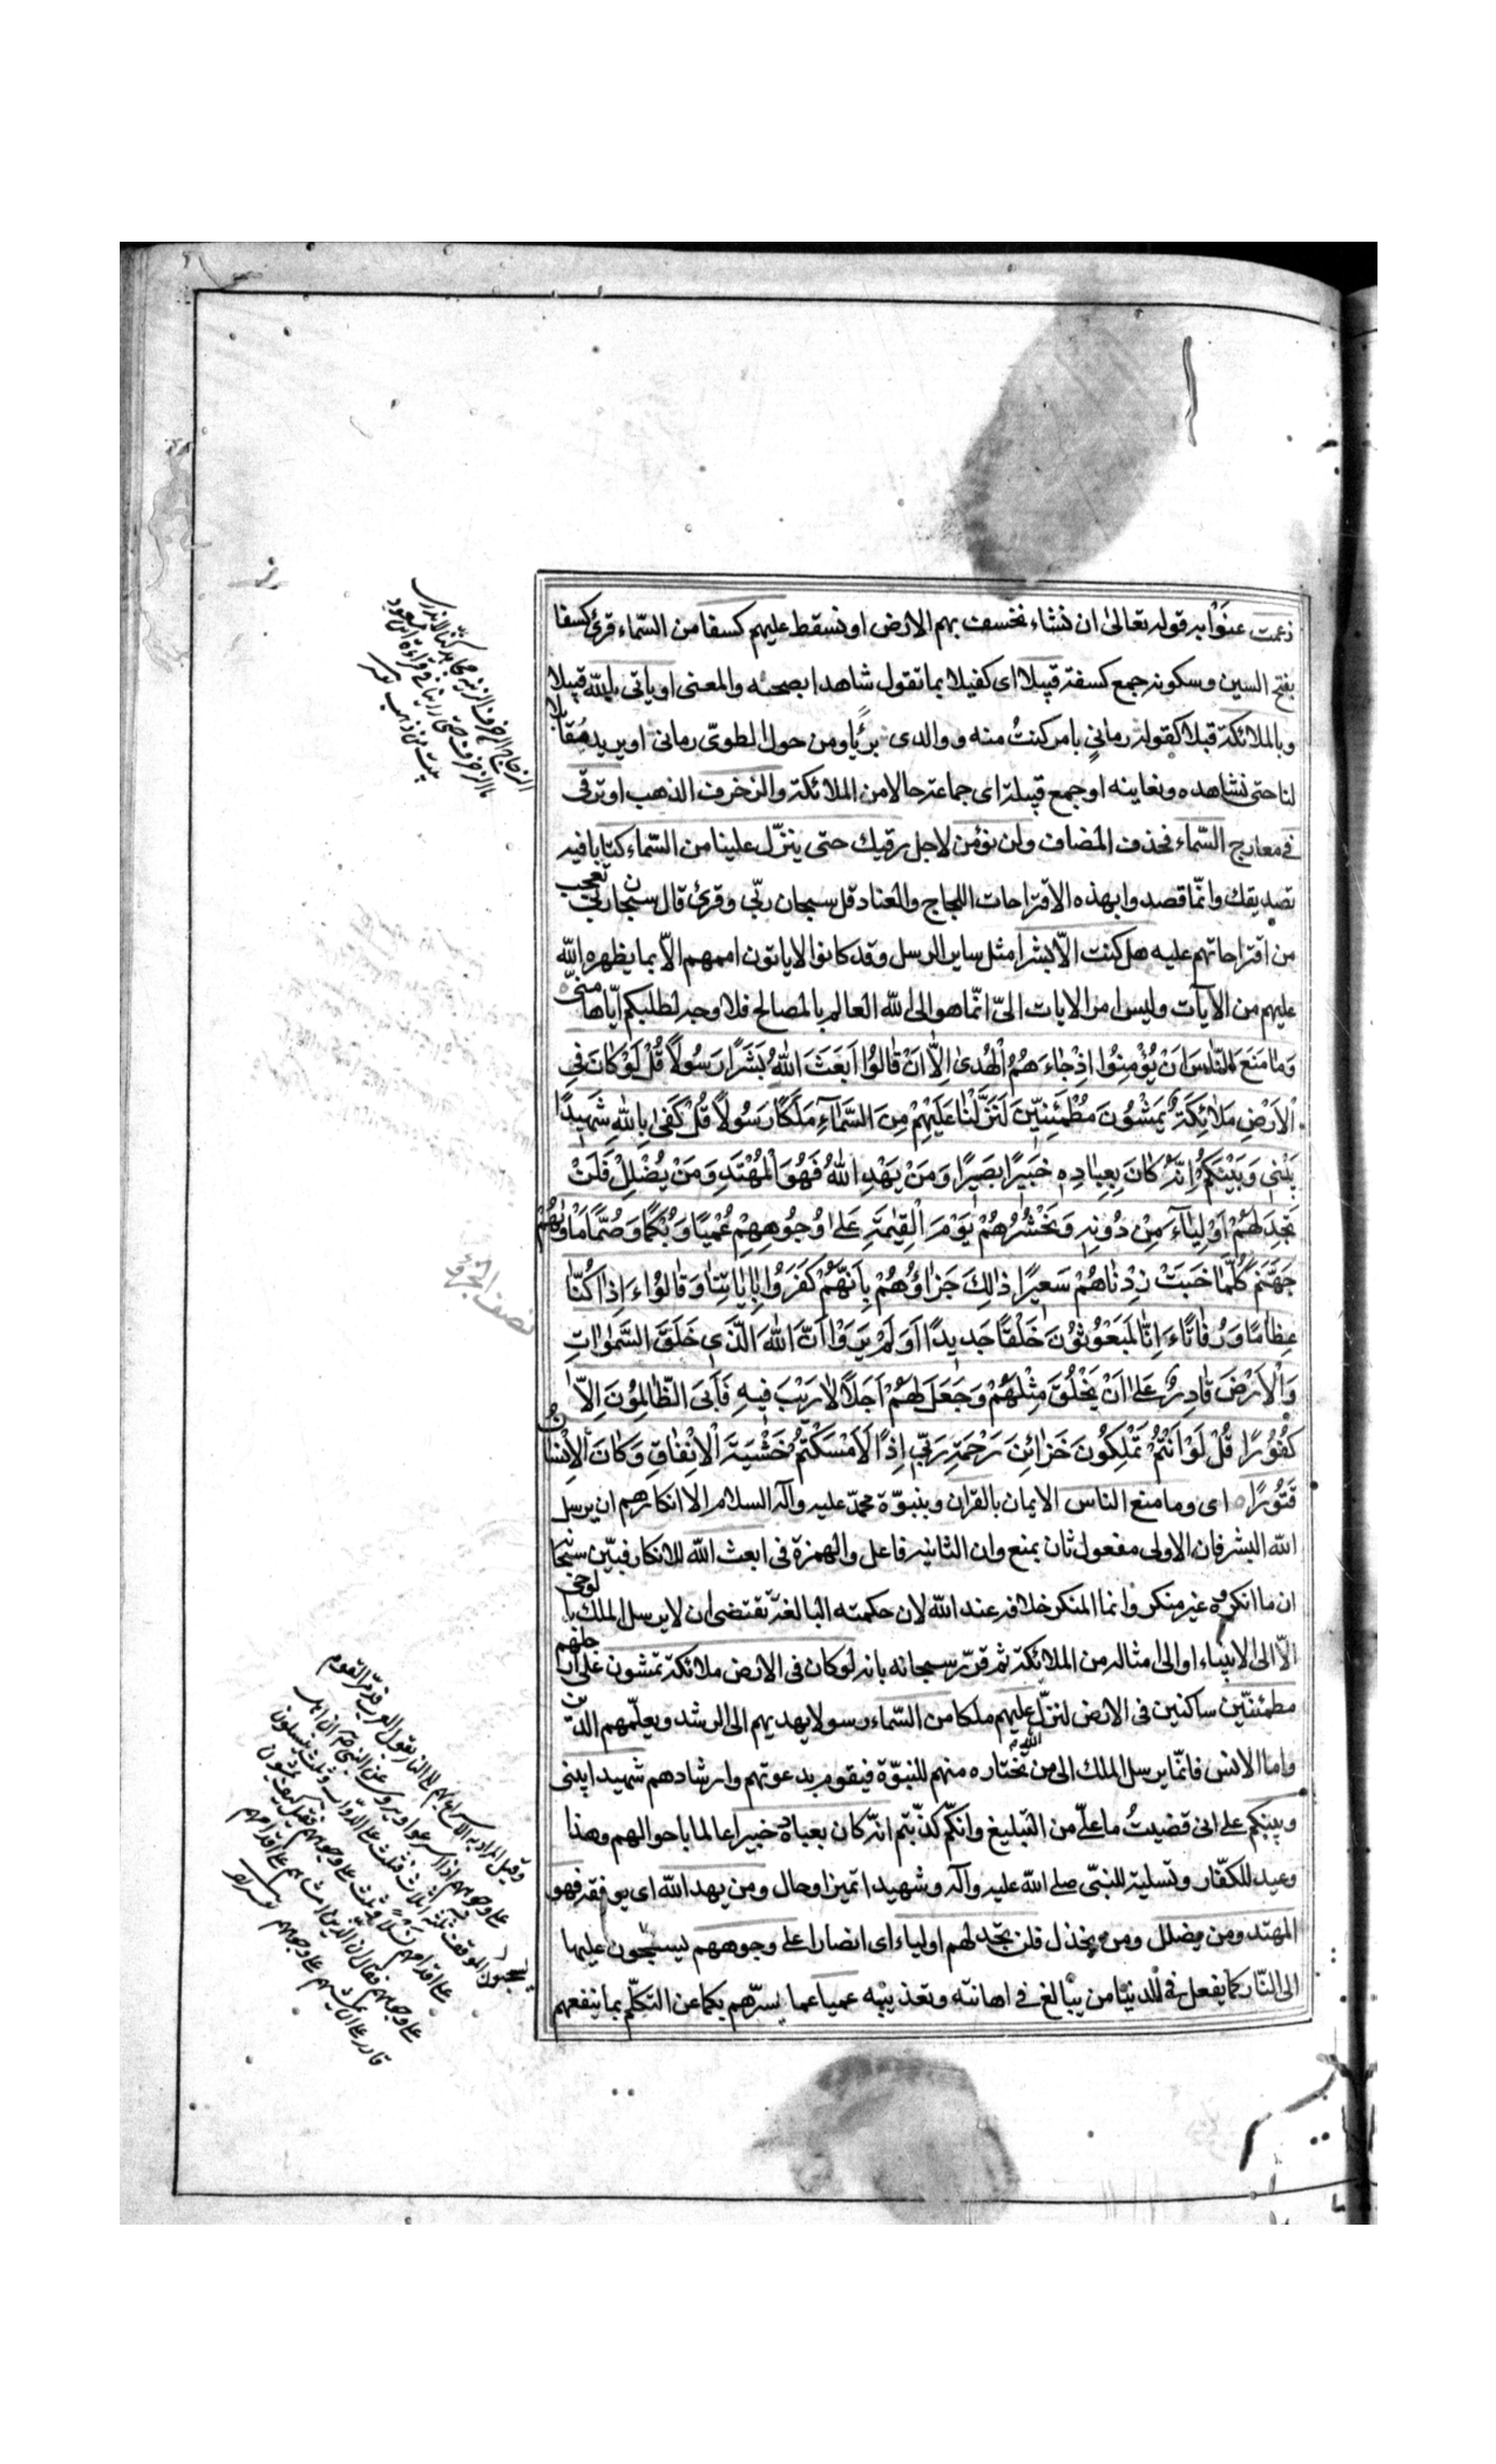 زعمت عنوا به قوله تعالى ان نشاء نخسف بهم الارض او نسقط عليهم كسفا من السّماء قرئ كسفا
بفتح السين وسكونه جمع كسفة قبيلا اى كفيلا بما تقول شاهدا بصحته والمعنى او ياتى بالله قبيلا
وبالملائكة قبلا كقوله رمانى بامر كنتُ منه ووالدى بريًا ومن حول الطوىّ رمانى او يريد مقابلا
لنا حتى نشاهده ونعاينه او جمع قبيلة اى جماعة حالا من الملائكة والزخرف الذهب او ترقى
فى معارج السّماء فحذف المضاف ولن نؤمن لاجل رقيك حتى ينزّل علينا من السّماء كتابا فيه
تصديقك وانّما قصدوا بهذه الاقتراحات اللجاج والعناد قل سبحان ربّى وقرئ قال سبحان ربى تعجب
من اقتراحاتهم عليه هل كنت الّا بشرا مثل ساير الرسل وقد كانوا لا ياتون اممهم الّا بما يظهره الله
عليهم من الآيات وليس امر الايات الىّ انّما هو الى الله العالم بالمصالح فلا وجه لطلبكم ايّاها منّى
وَمَا مَنَعَ النَّاسَ اَنْ يُؤْمِنُوا اِذْ جَاءَهُمُ الْهُدىٰ اِلَّا اَنْ قَالُوا اَبَعَثَ اللهُ بَشَرًا رَسُولًا قُلْ لَوْ كَانَ فِى
الْاَرْضِ مَلَائِكَةٌ يَمْشُونَ مُطْمَئِنِّينَ لَنَزَّلْنَا عَلَيْهِمْ مِنَ السَّمَآءِ مَلَكًا رَسُولًا قُلْ كَفىٰ بِاللهِ شَهِيدًا
بَيْنِى وَبَيْنَكُمْ اِنَّهُ كَانَ بِعِبَادِهِ خَبِيرًا بَصِيرًا وَمَنْ يَهْدِ اللهُ فَهُوَ الْمُهْتَدِ وَمَنْ يُضْلِلْ فَلَنْ
تَجِدَ لَهُمْ اَوْلِيَاءَ مِنْ دُونِهِ وَنَحْشُرُهُمْ يَوْمَ الْقِيٰمَةِ عَلىٰ وُجُوهِهِمْ عُمْيًا وَبُكْمًا وَصُمًّا مَأْوٰيهُمْ
جَهَنَّمُ كُلَّمَا خَبَتْ زِدْنَاهُمْ سَعِيرًا ذٰلِكَ جَزَاؤُهُمْ بِاَنَّهُمْ كَفَرُوا بِاٰيَاتِنَا وَقَالُوا ءَاِذَا كُنَّا
عِظَامًا وَرُفَاتًا ءَاِنَّا لَمَبْعُوثُونَ خَلْقًا جَدِيدًا اَوَلَمْ يَرَوْا اَنَّ اللهَ الَّذِى خَلَقَ السَّمٰوَاتِ
وَالْاَرْضَ قَادِرٌ عَلىٰ اَنْ يَخْلُقَ مِثْلَهُمْ وَجَعَلَ لَهُمْ اَجَلًا لَا رَيْبَ فِيهِ فَاَبَى الظَّالِمُونَ اِلَّا
كُفُورًا قُلْ لَوْ اَنْتُمْ تَمْلِكُونَ خَزَائِنَ رَحْمَةِ رَبِّى اِذًا لَاَمْسَكْتُمْ خَشْيَةَ الْاِنْفَاقِ وَكَانَ الْاِنْسَانُ
قَتُورًا اى وما منع الناس الايمان بالقران وبنبوّة محمّد عليه وآله السلام الا انكارهم ان يرسل
الله البشر فان الاولى مفعول ثان بمنع وان الثانيه فاعل والهمزة فى ابعث الله للانكار فبيّن سبحانه
ان ما انكروه غير منكر وانما المنكر خلافه عند الله لان حكمته البالغة تقتضى ان لا يرسل الملك بالوحى
الّا الى الانبياء او الى امثاله من الملائكة ثم قرّر سبحانه بانه لو كان فى الارض ملائكة تمشون على ارجلهم
مطمئنّين ساكنين فى الارض لنزّل الله عليهم ملكا من السّماء رسولا يهديهم الى الرشد ويعلّمهم الدّين
واما الانس فانّما يرسل الملك الى من نختاره منهم للنبوّة فيقوم بدعوتهم وارشادهم شهيدا بينى
وبينكم على انى قضيتُ ما علىّ من التبليغ وانكم كذّبتم انّه كان بعباده خبيرا عالما باحوالهم وهذا
وعيد للكفّار وتسلية للنبّى صلى الله عليه وآله وشهيدا تميز او حال ومن يهد الله اى يوفقه فهو
المهتد ومن يضلل ومن يخذل فلن تجد لهم اولياء اى انصارا على وجوههم يسحبون عليها
الى النّار كما يفعل فى الدنيا من يبالغ فى اهانته وتعذيبه عميا عما يسرّهم بكما عن التكلّم بما ينفعهم
الزجاج الزخرف الزينة
نصف الجزء
وقيل المراد به الاسراع بهم الى النار تقول العرب قدم القوم
على وجوههم اذا اسرعوا